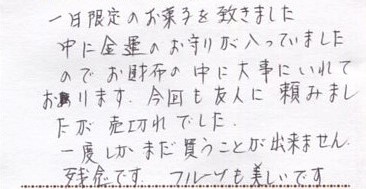 一日限定のお菓子を致きました
中に金運のお守りが入っていました
のでお財布の中に大事にいれて
おります.今回も友人に頼みまし
たが売切れでした.
一度しかまだ買うことが出来ません.
残念です.フルーツも美しいです